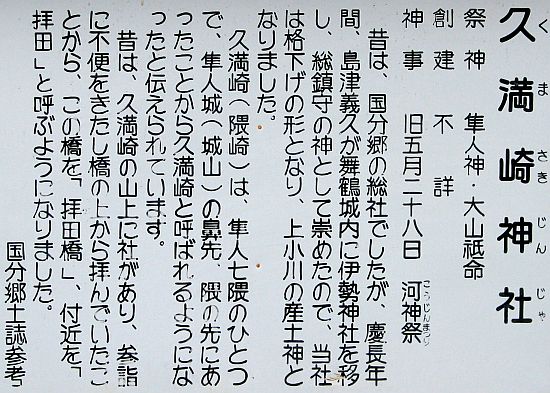 久満崎神社
くまさきじんじゃ
祭神　隼人神・大山祇命
創建　不詳
神事　旧五月二十八日　河神祭
こうじんまつり
昔は、国分郷の総社でしたが、慶長年
間、島津義久が舞鶴城内に伊勢神社を移
し、総鎮守の神として崇めたので、当社
は格下げの形となり、上小川の産土神と
なりました。
久満崎（隈崎）は、隼人七隈のひとつ
で、隼人城（城山）の鼻先、隈の先にあ
ったことから久満崎と呼ばれるようにな
ったと伝えられています。
昔は、久満崎の山上に社があり、参詣
に不便をきたし橋の上から拝んでいたこ
とから、この橋を「拝田橋」、付近を「
拝田」と呼ぶようになりました。
国分郷土誌参考